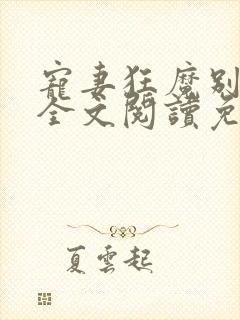 寵妻狂魔別
全文閱讀免
夏雲起